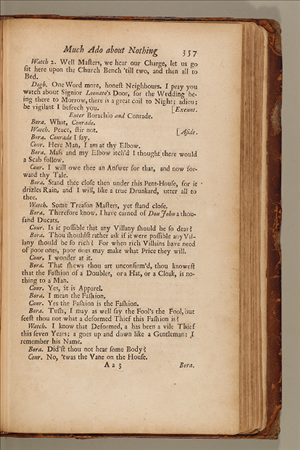 Much Ado about Nothing 357
Watch 2. Well Masters, we hear our Charge, let us go
sit here upon the Church Bench 'till two, and then all to
Bed.
Dogb. One Word more, honest Neighbours. I pray you
watch about Signior Leonato's Door, for the Wedding be-
ing there to Morrow, there is a great coil to Night; adieu;
be vigilant I beseech you. [Exeunt.
Enter Borachio and Conrade.
Bora. What, Conrade.
Watch. Peace, stir not. [Aside.
Bora. Conrade I say.
Conr. Here Man, I am at thy Elbow.
Bora. Mass and my Elbow itch'd I thought there would
a Scab follow.
Conr. I will owe thee an Answer for that, and now for-
ward thy Tale.
Bora. Stand thee close then under this Pent-House, for it
drizles Rain, and I will, like a true Drunkard, utter all to
thee.
Watch. Some Treason Masters, yet stand close.
Bora. Therefore know, I have earned of Don John a thou-
sand Ducats.
Conr. Is it possible that any Villany should be so dear?
Bora. Thou should'st rather ask if it were possible any Vil-
lany should be so rich? For when rich Villains have need
of poor ones, poor ones may make what Price they will.
Conr. I wonder at it.
Bora. That shews thou art unconfirm'd, thou knowest
that the Fashion of a Doublet, or a Hat, or a Cloak, is no-
thing to a Man.
Conr. Yes, it is Apparel.
Bora. I mean the Fashion.
Conr. Yes the Fashion is the Fashion.
Bora. Tush, I may as well say the Fool's the Fool, but
seest thou not what a deformed Thief this Fashion is?
Watch. I know that Deformed, a has been a vile Thief
this seven Years; a goes up and down like a Gentleman: I
remember his Name.
Bora. Did'st thou not hear some Body?
Conr. No, 'twas the Vane on the House.
A a 3 Bora.